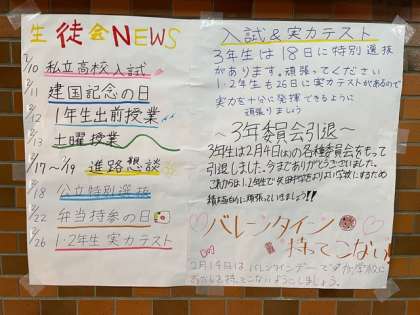 生徒会NEWS
2/10 私立高校入試
2/11 建国記念の日
2/12 1年生出前授業
2/13 土曜授業
2/17〜2/19 進路懇談
2/18 公立特別選抜
2/22 弁当持参の日
2/26 1・2年生実力テスト
入試&実力テスト
3年生は18日に特別選抜
があります。頑張ってください
1・2年生も26日に実力テストがあるので
実力を十分に発揮できるように
頑張りましょう
〜3年委員会引退〜
3年生は2月4日(木)の各種委員会をもって
引退しました。今までありがとうございました。
これからは1・2年生で
学校にするため
頑張っていきましょう!!
バレンタイン
持ってこない
2月14日はバレンタインデーですが、学校に
お菓子を持ってこないようにしましょう。